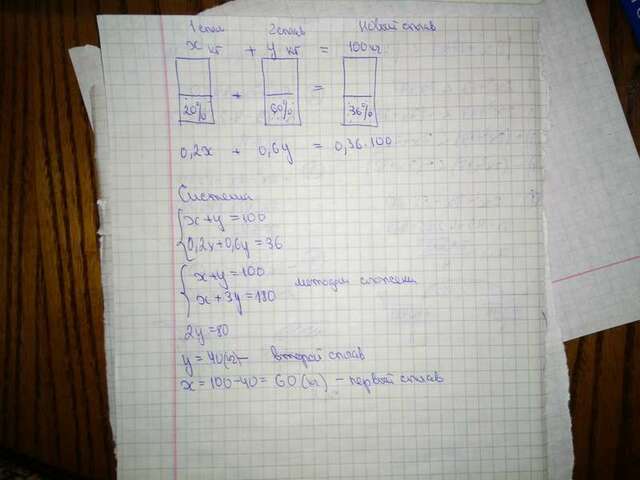 1 сплав 2 сплав Новый сплав
x кг + y кг = 100 кг
20% + 60% = 36%
0,2x + 0,6y = 0,36·100
Система
x+y=100
0,2x+0,6y=36
x+y=100
x+3y=180 методом сложения
2y=80
y=40(кг)- второй сплав
x=100-40=60(кг) - первый сплав